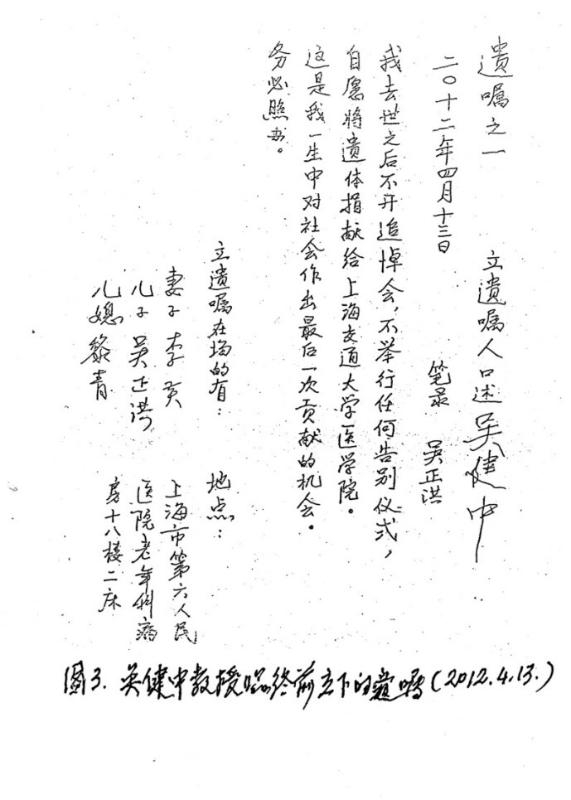 遗嘱之一 立遗嘱人口述 吴健中
二〇十二年四月十三日 笔录 吴正洪
我去世之后不开追悼会，不举行任何告别仪式，
自愿将遗体捐献给上海交通大学医学院。
这是我一生中对社会作出最后一次贡献的机会。
务必照办。
立遗嘱在场的有：
妻子 李
儿子 吴正洪
儿媳 黎青
地点：
上海市第六人民
医院老年科病
房十八楼二床
图3. 吴健中教授临终前立下的遗嘱(2012.4.13.)